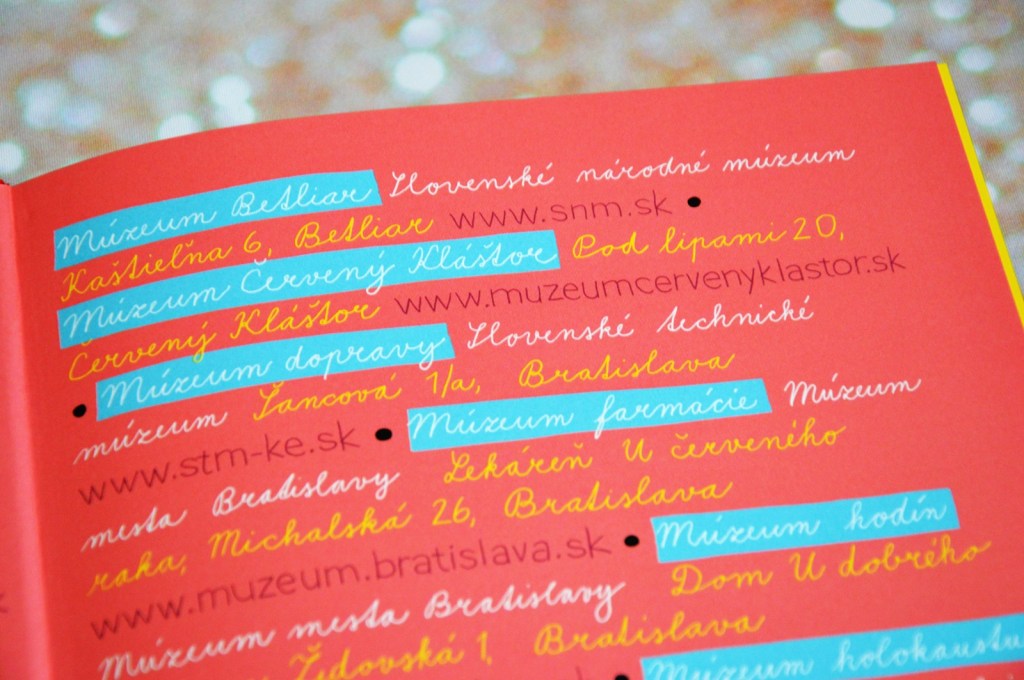 Múzeum Betliar Slovenské národné múzeum
Kaštieľna 6, Betliar www.snm.sk •
Múzeum Červený Kláštor Pod lipami 20,
Červený Kláštor www.muzeumcervenyklastor.sk
• Múzeum dopravy Slovenské technické
múzeum Šancová 1/a, Bratislava
www.stm-ke.sk • Múzeum farmácie Múzeum
mesta Bratislavy Lekáreň U červeného
raka, Michalská 26, Bratislava
www.muzeum.bratislava.sk • Múzeum hodín
Múzeum mesta Bratislavy Dom U dobrého
Židovská 1, Bratislava
• Múzeum holokaustu